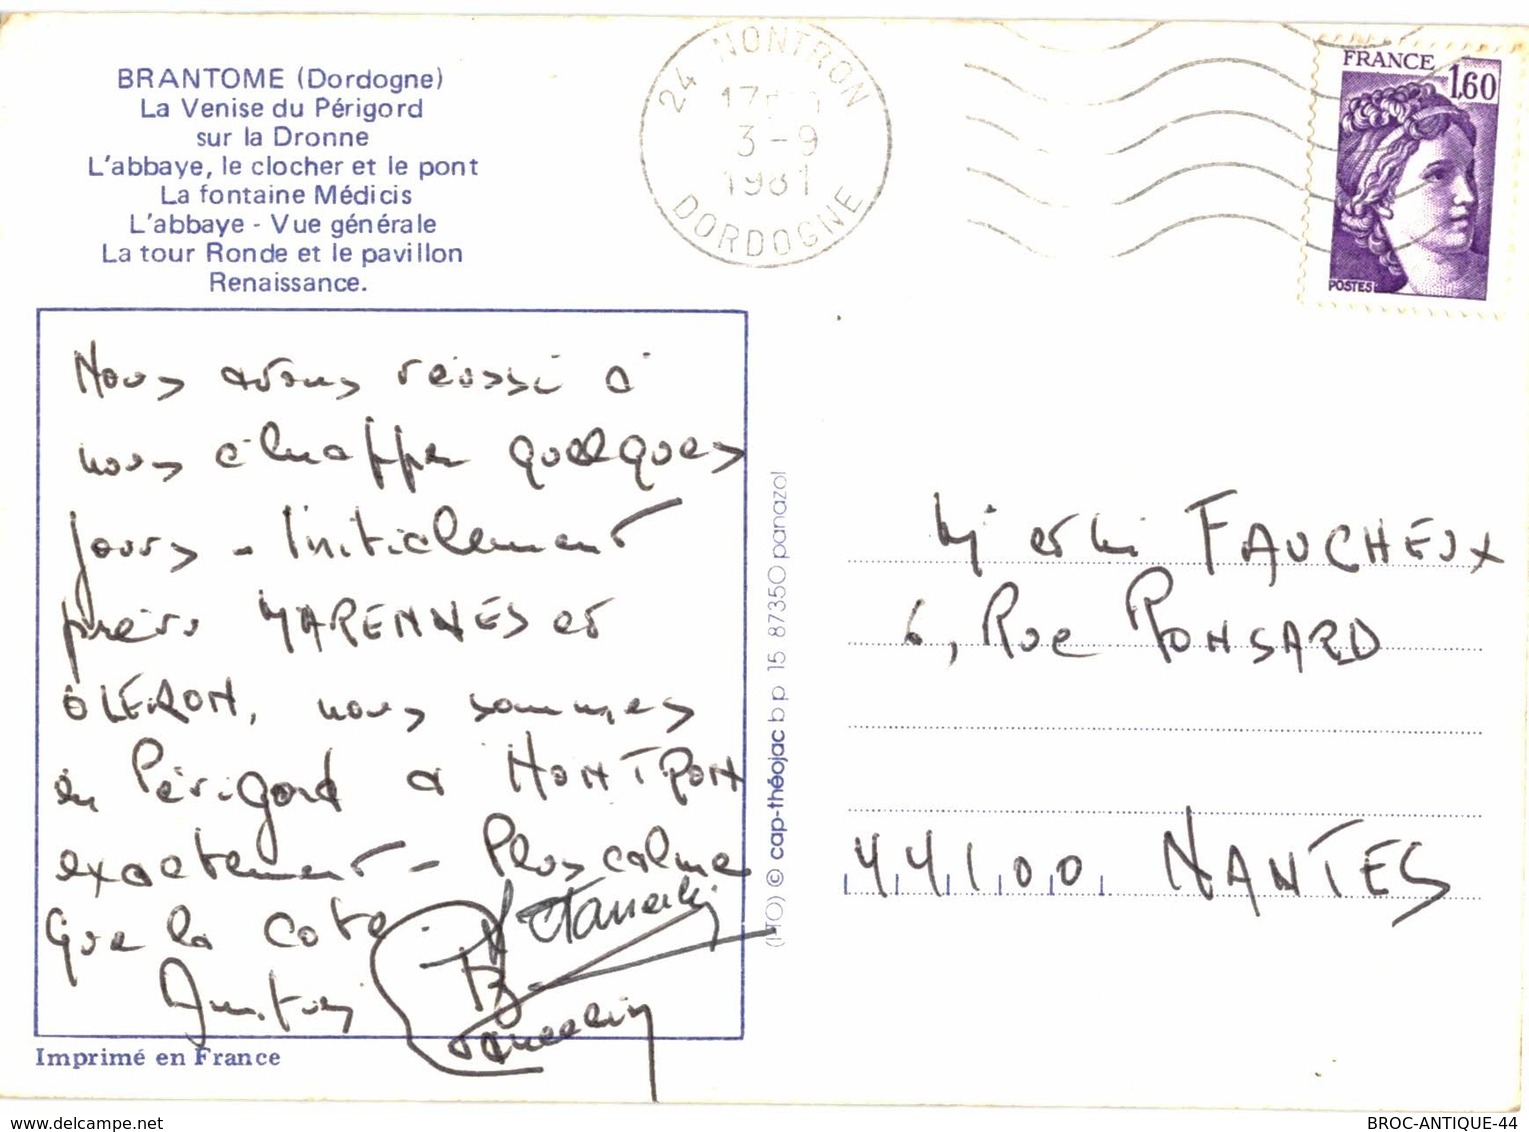 BRANTOME (Dordogne)
La Venise du Périgord
sur la Dronne
L'abbaye, le clocher et le pont
La fontaine Médicis
L'abbaye - Vue générale
La tour Ronde et le pavillon
Renaissance.
24 NONTRON
17H
3-9
1981
DORDOGNE
FRANCE
1,60
POSTES
Nous avons réussi à
nous échapper quelques
jours - Initialement
près MARENNES et
OLERON, nous sommes
en Périgord à NONTRON
exactement - Plus calme
que la cote.
Amitiés
(PTO) © cap-théojac b p 15 87350 panazol
Mr et Me FAUCHEUX
6, Rue RONSARD
44100 NANTES
Imprimé en France
www.delcampe.net
BROC-ANTIQUE-44